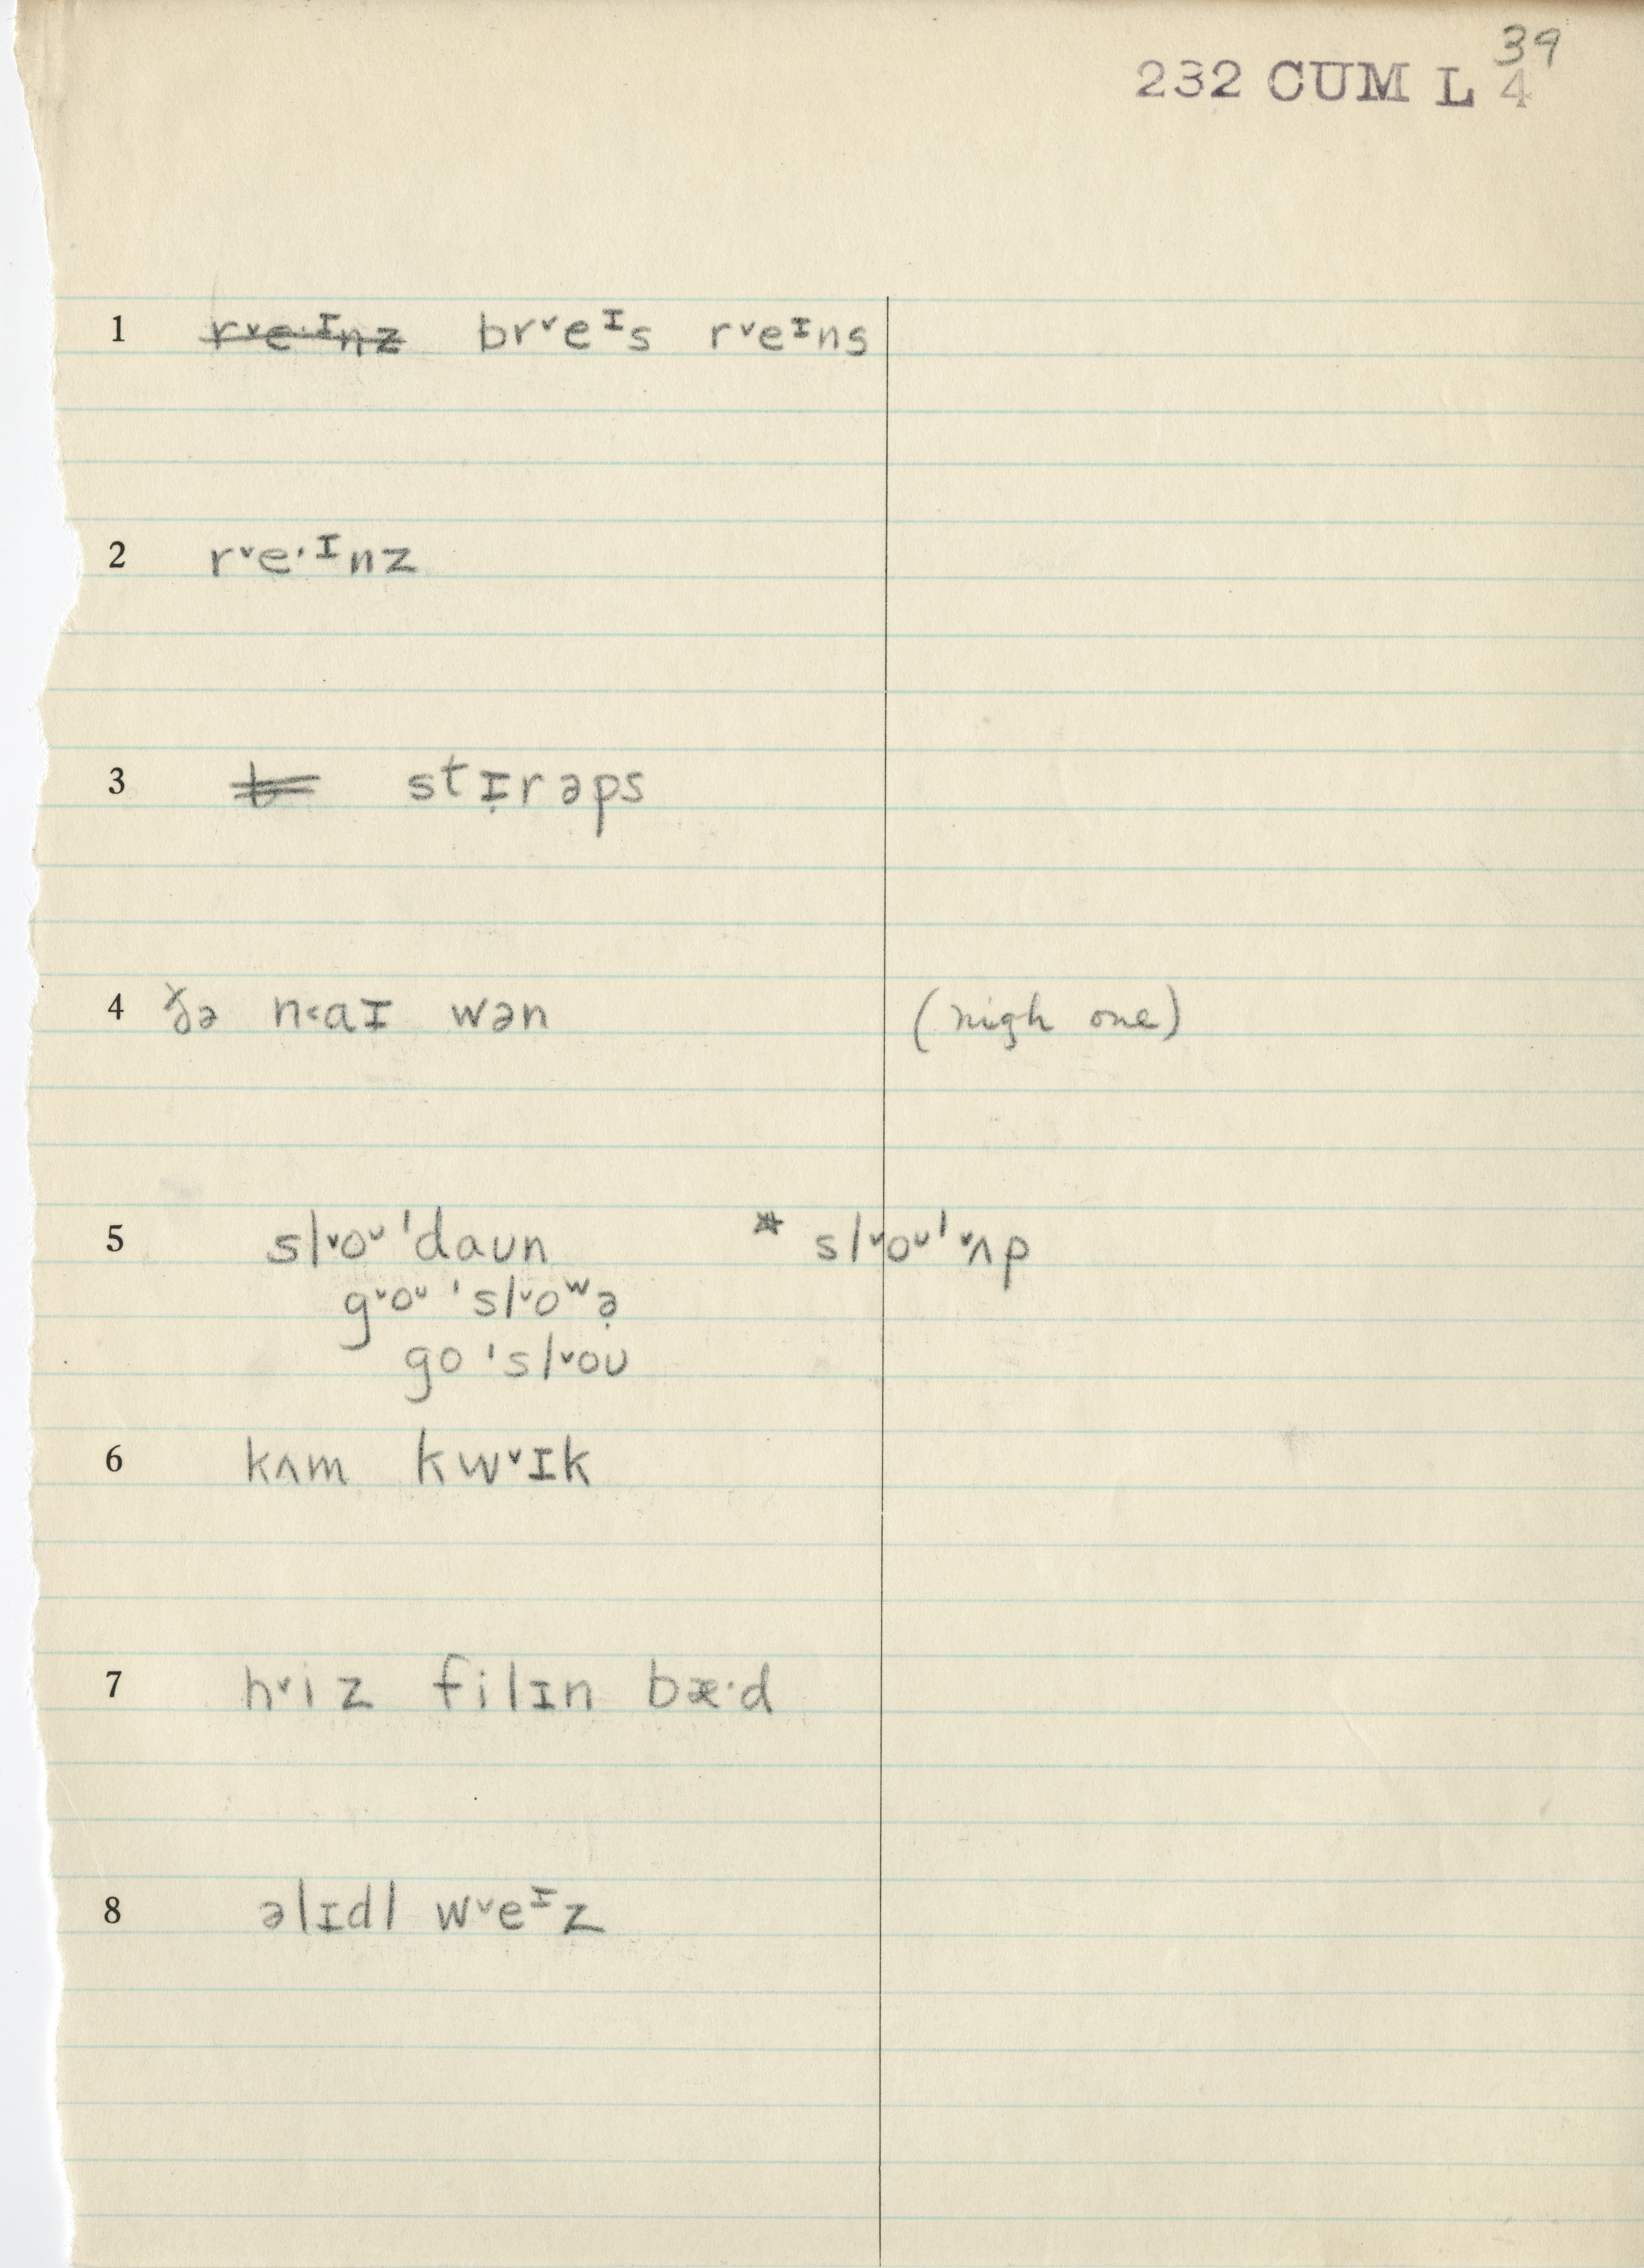 39
232 CUM L 4
1 r˅e·ᶦnz br˅eᶦs r˅eᶦns
2 r˅e·ᶦnz
3 t stɪ̣rəps
4 ðə n˂aɪ wən (nigh one)
5 sl˅oᶷ ˈdaʊn * sl˅oᶷˈ˅ʌp
g˅oᶷ ˈsl˅oʷə̣
go ˈsl˅oʊ
6 kʌm kw˅ɪk
7 h˅iz filɪn bæ·d
8 əlɪdl w˅eᶦz